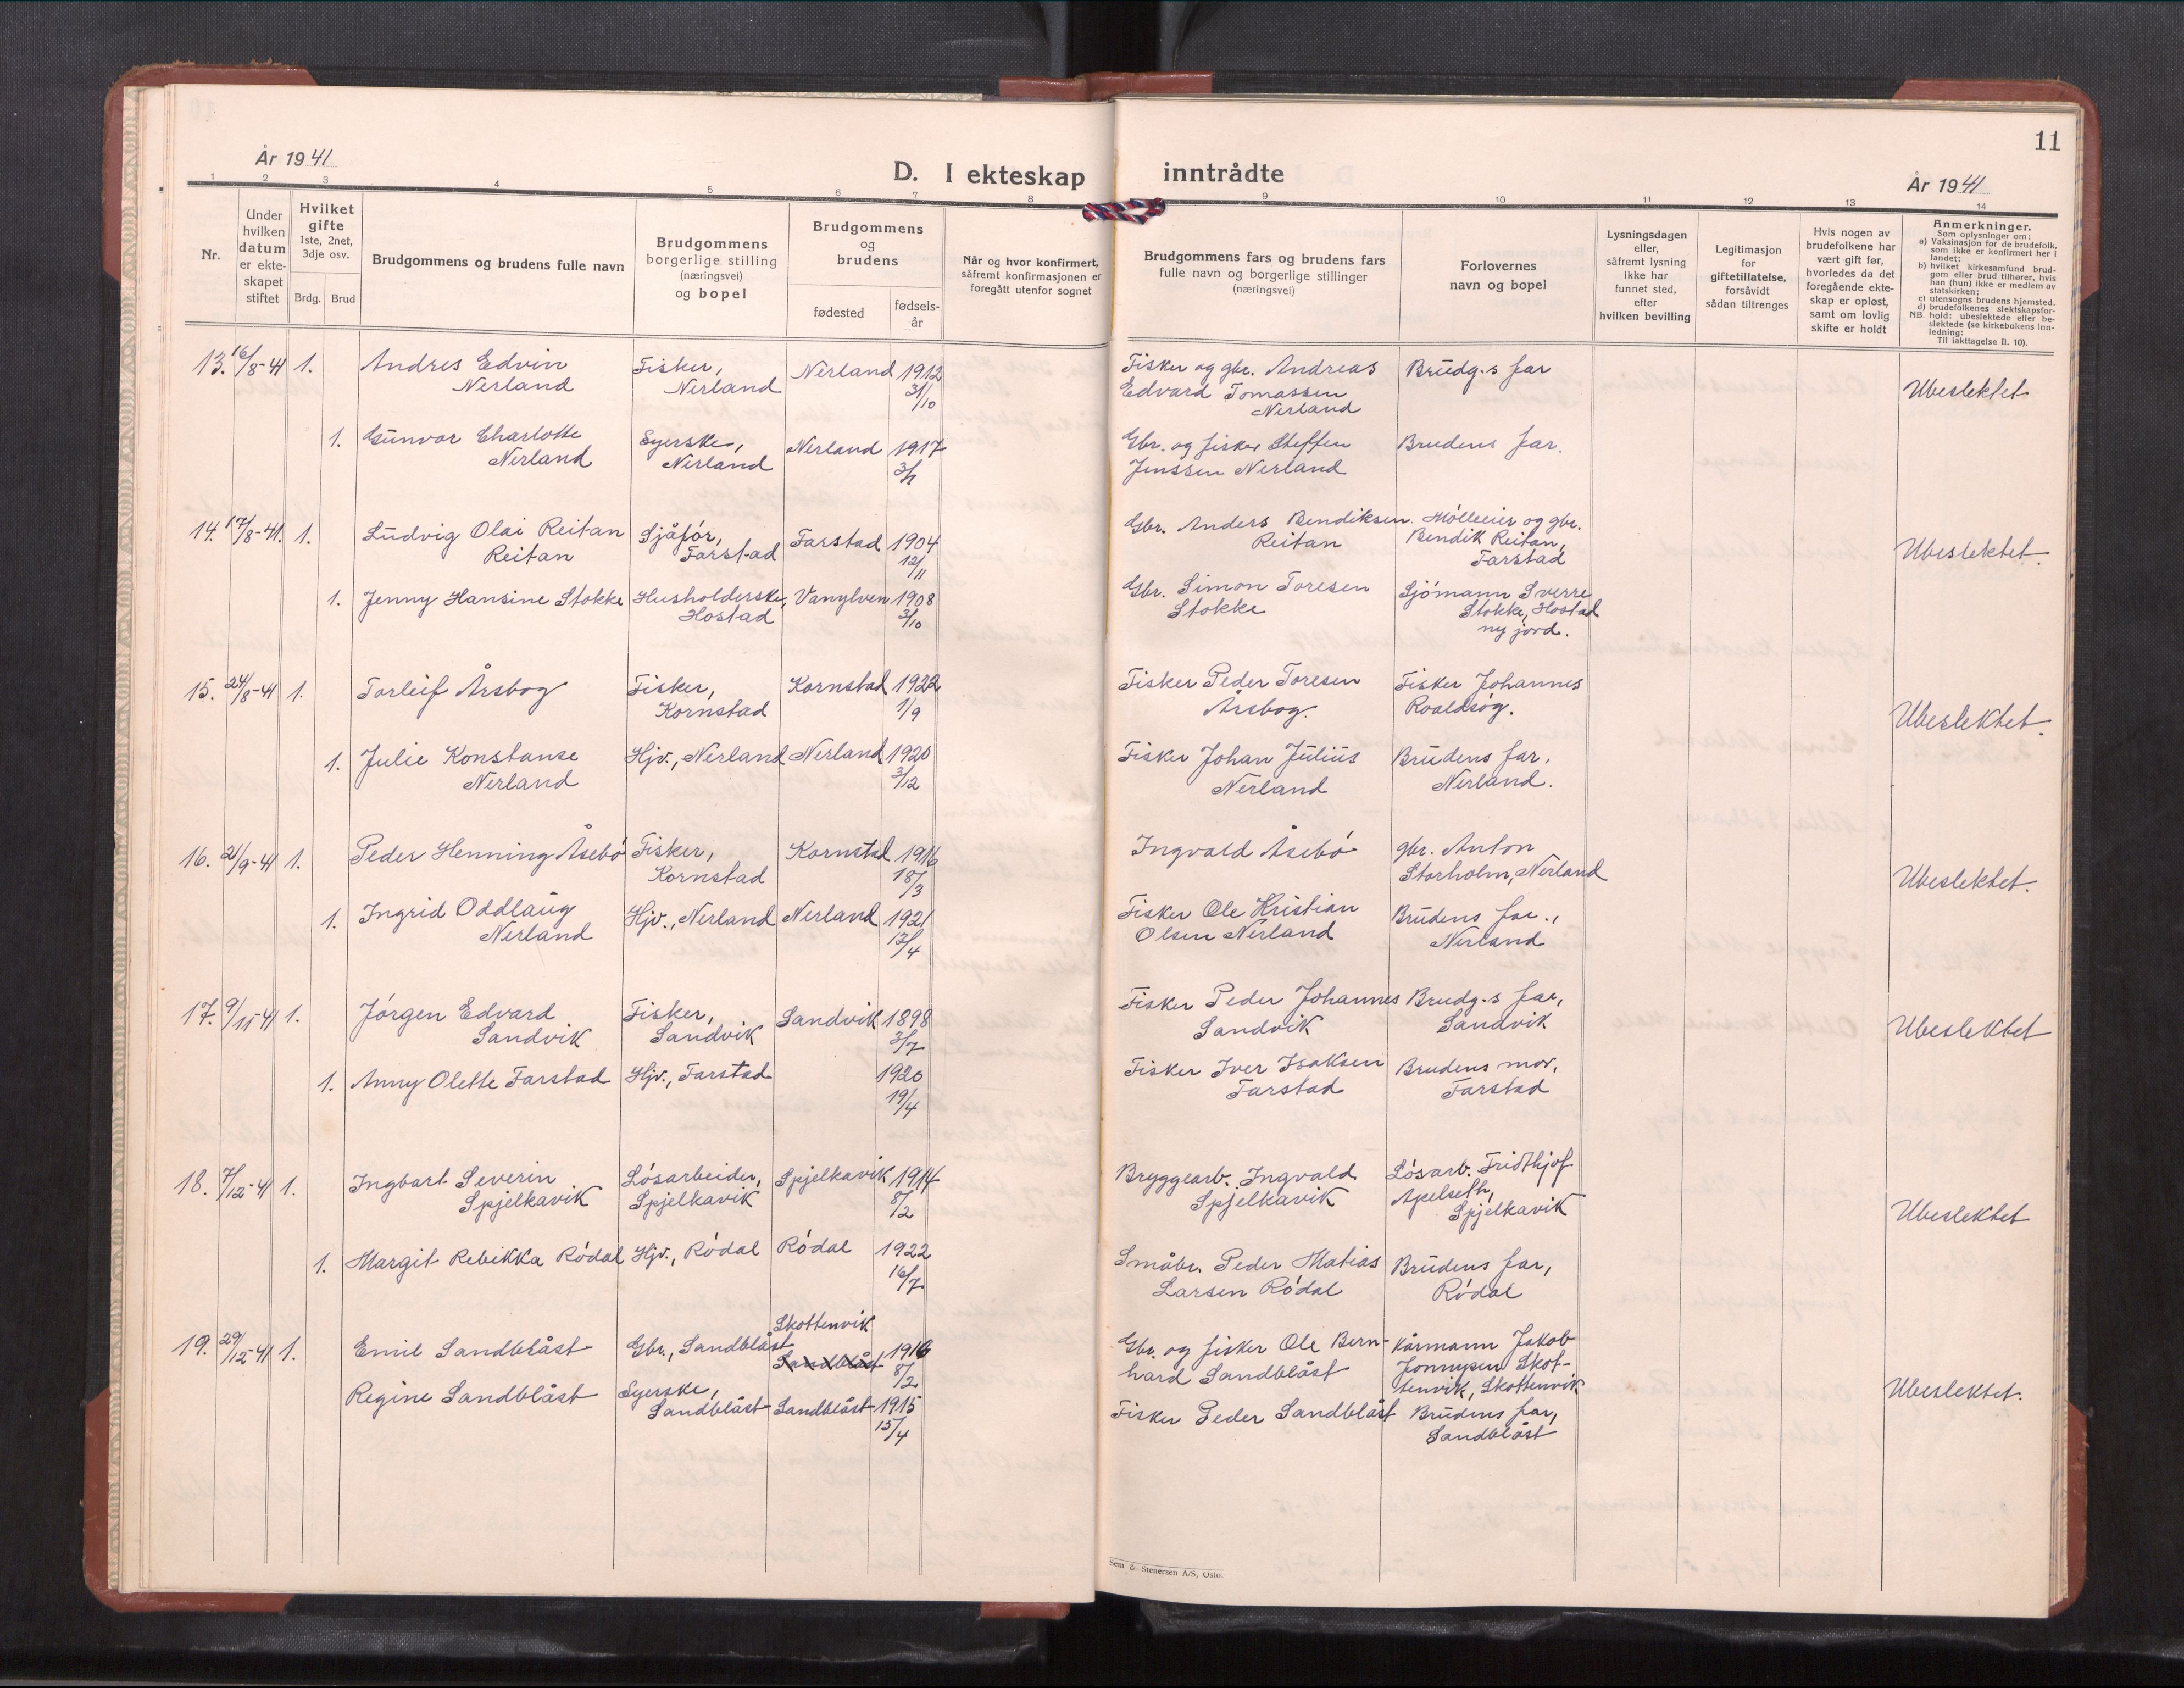 11
År 1941
D. I ekteskap inntrådte
År 1941
1 2 3 4 5 6 7 8 9 10 11 12 13 14
Nr.
Under
hvilken
datum
er ekte-
skapet
stiftet
Hvilket
gifte
1ste, 2net,
3dje osv.
Brdg. Brud
Brudgommens og brudens fulle navn
Brudgommens
borgerlige stilling
(næringsvei)
og bopel
Brudgommens
og
brudens
fødested
fødsels-
år
Når og hvor konfirmert,
såfremt konfirmasjonen er
foregått utenfor sognet
Brudgommens fars og brudens fars
fulle navn og borgerlige stillinger
(næringsvei)
Forlovernes
navn og bopel
Lysningsdagen
eller,
såfremt lysning
ikke har
funnet sted,
efter
hvilken bevilling
Legitimasjon
for
giftetillatelse,
forsåvidt
sådan tiltrenges
Hvis nogen av
brudefolkene har
vært gift før,
hvorledes da det
foregående ekte-
skap er opløst,
samt om lovlig
skifte er holdt
Anmerkninger.
Som oplysninger om:
a) Vaksinasjon for de brudefolk,
som ikke er konfirmert her i
landet;
b) hvilket kirkesamfund brud-
gom eller brud tilhører, hvis
han (hun) ikke er medlem av
statskirken;
c) utensogns brudens hjemsted.
d) brudefolkenes slektskapsfor-
NB. hold: ubeslektede eller be-
slektede (se kirkebokens inn-
ledning:
Til iakttagelse II. 10).
13. 16/8-41 1. Andres Edvin Fisker, Nerland 1912 Fisker og gbr. Andreas Brudg.s far
Nerland Nerland 31/10 Edvard Tomassen Ubeslektet
Nerland
1. Gunvor Charlotte Syerske, Nerland 1917 Gbr. og fisker Steffen Brudens far.
Nerland Nerland Jenssen Nerland
14. 17/8-41. 1. Ludvig Olai Reitan Sjåfør, Farstad 1904 Gbr. Anders Bendiksen. Mølleeier og gbr.
Reitan Farstad 12/11 Reitan Bendik Reitan, Ubeslektet.
Farstad
1. Jenny Hansine Stokke Husholderske, Vanylven 1908 Gbr. Simon Toresen Sjømann Sverre
Hostad 3/10 Stokke Stokke, Hostad
ny jord.
15. 24/8-41 1. Torleif Årsbog Fisker, Kornstad 1922 Fisker Peder Toresen Fisker Johannes
Kornstad 1/9 Årsbog. Roaldsøg. Ubeslektet.
1. Julie Konstanse Hjv., Nerland Nerland 1920 Fisker Johan Julius Brudens far,
Nerland 3/12 Nerland Nerland.
16. 21/9-41 1. Peder Henning Åsebø Fisker, Kornstad 1916 Ingvald Åsebø gbr. Anton
Kornstad 18/3 Storholm, Nerland Ubeslektet.
1. Ingrid Oddlaug Hjv., Nerland Nerland 1921 Fisker Ole Kristian Brudens far.,
Nerland 12/4 Olsen Nerland Nerland
17. 9/11-41 1. Jørgen Edvard Fisker, Sandvik 1898 Fisker Peder Johannes Brudg.s far,
Sandvik Sandvik 3/7 Sandvik Sandvik Ubeslektet
1. Anny Olette Farstad Hjv., Farstad 1920 Fisker Iver Isaksen Brudens mor,
19/4 Farstad Farstad
18. 7/12-41 1. Ingbart Severin Løsarbeider, Spjelkavik 1914 Bryggearb. Ingvald Løsarb. Fridthjof
Spjelkavik Spjelkavik 8/2 Spjelkavik Apelseth,
Spjelkavik Ubeslektet
1. Margit Rebikka Rødal Hjv., Rødal Rødal 1922 Småbr. Peder Matias Brudens far,
16/7 Larsen Rødal Rødal
Skottenvik
19. 29/12-41 1. Emil Sandblåst Gbr., Sandblåst Sandblåst 1916 Gbr. og fisker Ole Bern- Kårmann Jakob
8/2 hard Sandblåst Jonnysen Skot-
tenvik, Skottenvik Ubeslektet.
Regine Sandblåst Syerske, Sandblåst 1915 Fisker Peder Sandblåst Brudens far,
Sandblåst 15/4 Sandblåst
Sem & Stenersen A/S, Oslo.